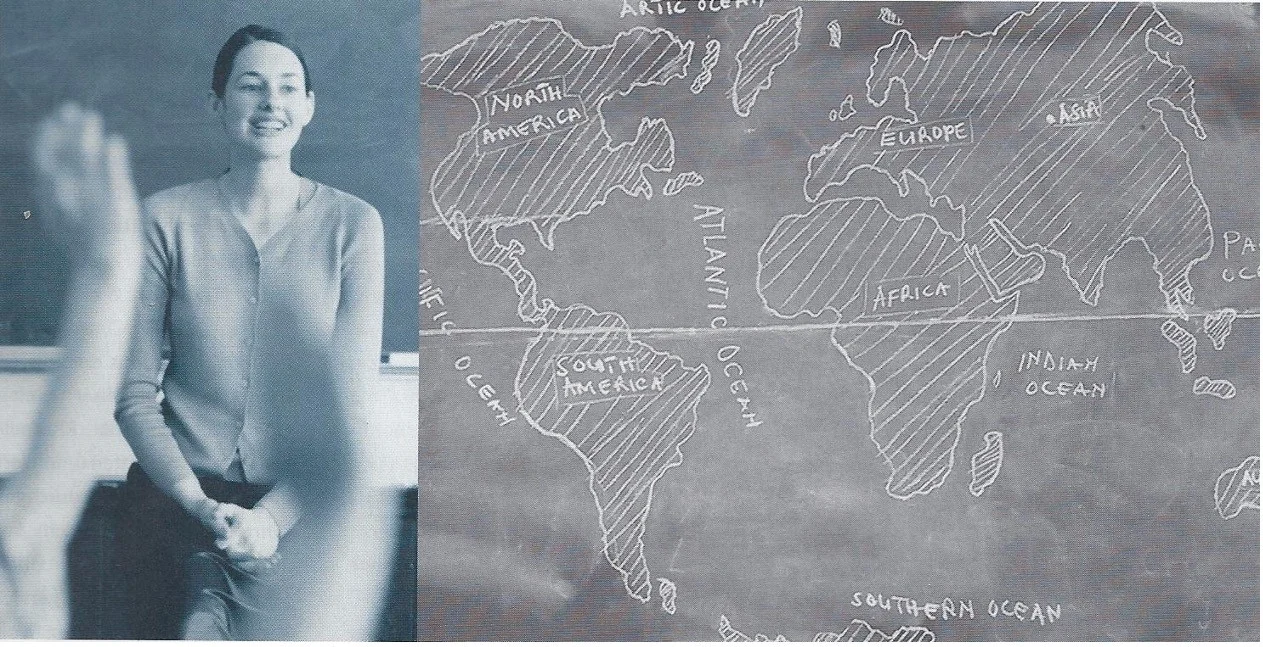 ARTIC OCEAN
NORTH
AMERICA
EUROPE
ASIA
ATLANTIC OCEAN
AFRICA
OCEAN
SOUTH
AMERICA
INDIAN
OCEAN
SOUTHERN OCEAN